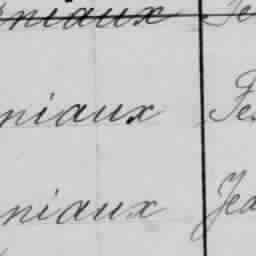 niaux Je
niaux Fé
niaux Jea